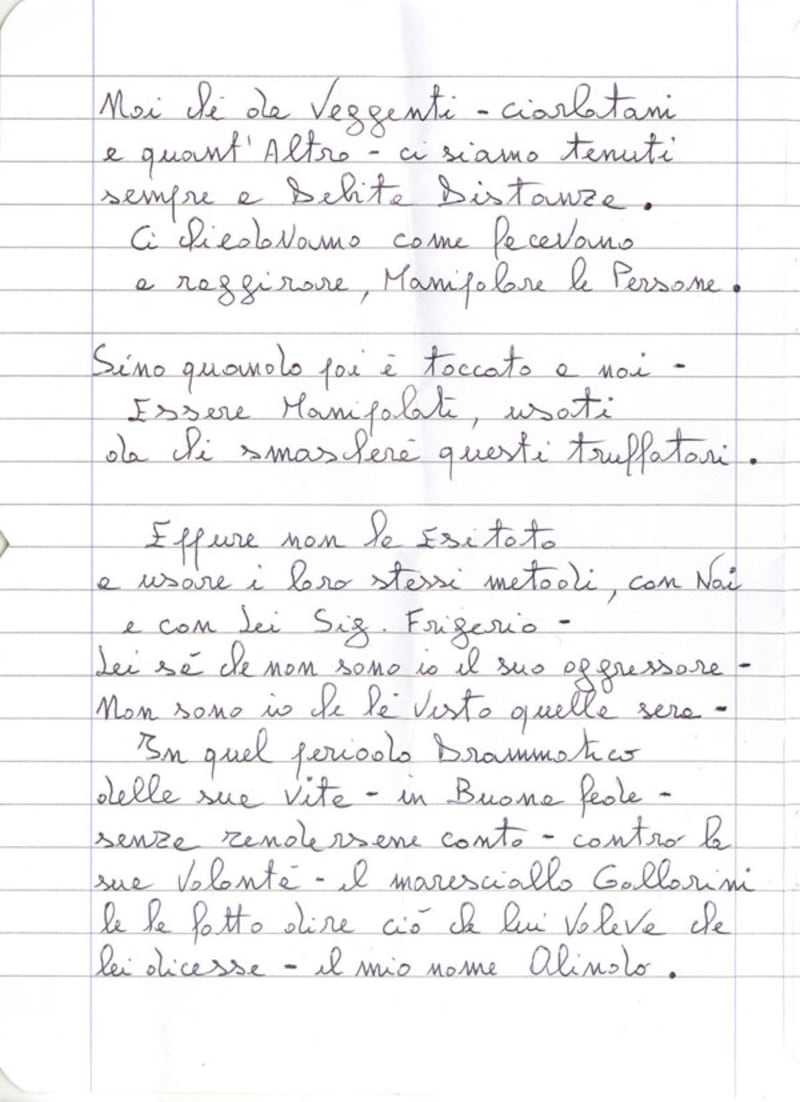 Noi chi da Veggenti - ciarlatani
e quant'Altro - ci siamo tenuti
sempre a Debita Distanza.
Ci chiedevamo come facevano
a raggirare, Manipolare le Persone.
Sino quando poi è toccato a noi -
Essere Manipolati, usati
da chi smascherà questi truffatori.
Eppure non ha Esitato
a usare i loro stessi metodi, con Noi
e con Lei Sig. Frigerio -
Lei sà che non sono io il suo aggressore -
Non sono io che hà visto quella sera -
In quel periodo Drammatico
della sua vita - in Buona fede -
senza rendersene conto - contro la
sua Volontà - il maresciallo Gallorini
le ha fatto dire ciò che lui voleva che
lei dicesse - il mio nome Olindo.